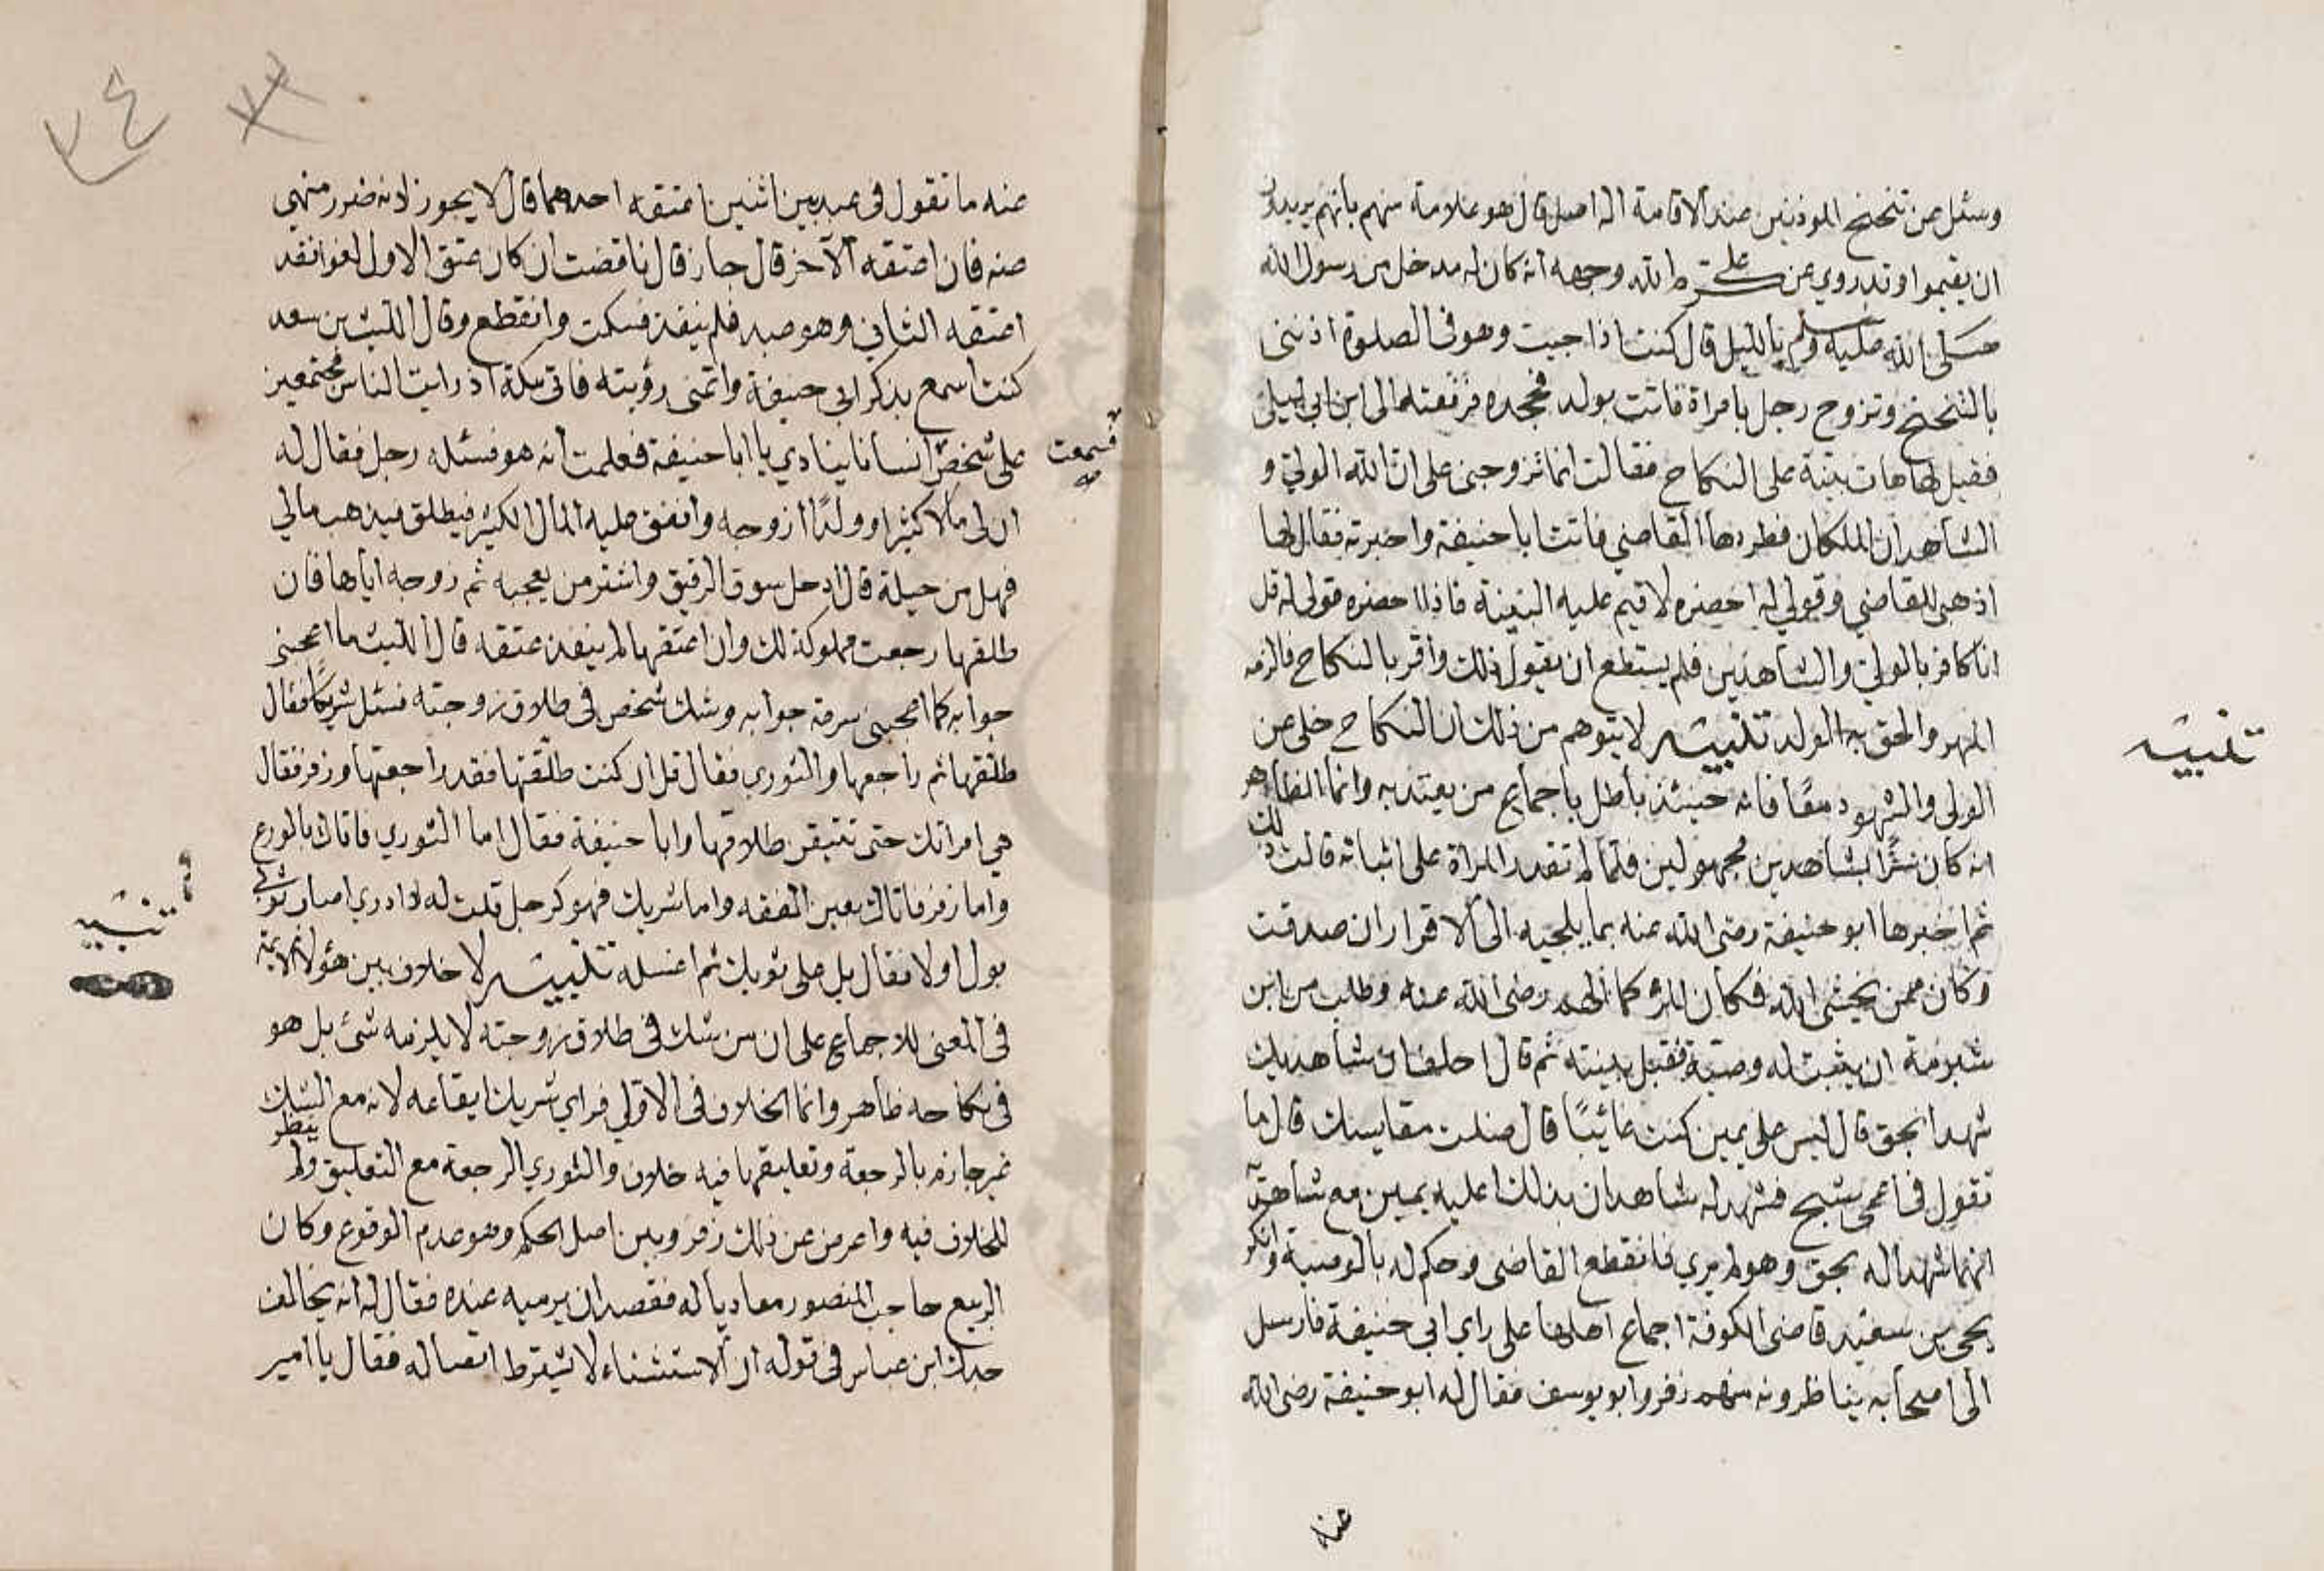 وسئل عن تنحنح الموذنين عند الاقامة اله اصل قال هو علامة منهم بانهم يريدون
ان يقيموا وقد روي عن علي كرم الله وجهه انه كان له مدخل من رسول الله
صلى الله عليه وسلم بالليل قال كنت اذا جيت وهو في الصلوة اذنني
بالتنحنح وتزوج رجل بامراة فاتت بولد فجحده فرفعته الى ابن ابي ليلى
فقيل لها هات بينة على النكاح فقالت انما تزوجني على ان الله الولي و
الشاهدان الملكان فطردها القاضي فاتت ابا حنيفة واخبرته فقال لها
اذهبي للقاضي وقولي له احضره لاقيم عليه البينة فاذا احضره قولي له قل
انا كافر بالولي والشاهدين فلم يستطع ان يقول ذلك واقر بالنكاح فالزمه
المهر والحق به الولد تنبيه لا يتوهم من ذلك ان النكاح خلى عن
تنبيه
الولى والشهود معا فانه حينئذ باطل باجماع من يعتد به وانما الظاهر
انه كان سرًّا بشاهدين مجهولين فلما لم تقدر المراة على اثباته قالت ذلك
ثم اخبرها ابو حنيفة رضى الله عنه بما يلجيه الى الاقرار ان صدقت
وكان ممن يخشى الله فكان الامر كما الهم رضى الله عنه وطلب من ابن
شبرمة ان يثبت له وصية فقبل بينته ثم قال احلف ان شاهديك
شهدا بحق قال ليس على يمين كنت غائبًا قال ضلت مقاييسك قال ما
تقول في اعمى شج فشهد له شاهدان بذلك اعليه يمين مع شاهديه
انهما شهدا له بحق وهو لم يري فانقطع القاضى وحكم له بالوصية وانكر
يحيى بن سعيد قاضى الكوفة اجماع اهلها على راي ابي حنيفة فارسل
الى اصحابه يناظرونه منهم زفر وابو يوسف فقال له ابو حنيفة رضى الله
عنه
٧٤
عنه ما تقول في عبد بين اثنين اعتقه احدهما قال لا يجوز لانه ضرر منهي
عنه فان اعتقه الآخر قال جاز قال ناقضت ان كان عتق الاول لغوا فقد
اعتقه الثاني وهو عبد فلم ينفذ فسكت وانقطع وقال الليث بن سعد
كنت اسمع بذكر ابي حنيفة واتمنى رؤيته فاتى مكة اذ رايت الناس مجتمعين
على شخص انسانا ينادي يا ابا حنيفة فعلمت انه هو فسئله رجل فقال له
فسمعت
ان لى مالا كثيرا وولدًا ازوجه وانفق عليه المال الكثير فيطلق فيذهب مالي
فهل من حيلة قال ادخل سوق الرقيق واشتر من يعجبه ثم زوجه اياها فان
طلقها رجعت مملوكة لك وان اعتقها لم ينفذ عتقه قال الليث ما اعجبنى
جوابه كما اعجبنى سرعة جوابه وشك شخص فى طلاق زوجته فسئل شريكا فقال
طلقها ثم راجعها والثوري فقال قل ان كنت طلقتها فقد راجعتها وزفر فقال
هي امراتك حتى تتيقن طلاقها وابا حنيفة فقال اما الثوري فافتاك بالورع
واما زفر فافتاك بعين الفقه واما شريك فهو كرجل قلت له لا ادري اصاب ثوبي
بول او لا فقال بل على ثوبك ثم اغسله تنبيه لا خلاف بين هؤلاء الايمة
تنبيه
فى المعنى للاجماع على ان من شك فى طلاق زوجته لا يلزمه شئ بل هو
فى نكاحه ظاهر وانما الخلاف فى الاولى فراي شريك ايقاعه لانه مع الشك
غير جازم بالرجعة وتعليقها فيه خلاف والثوري الرجعة مع التعليق ولم ينظر
للخلاف فيه واعرض عن ذلك زفر وبين اصل الحكم وهو عدم الوقوع وكان
الربيع حاجب المنصور معاديا له فقصد ان يرميه عنده فقال له انه يخالف
جدك ابن عباس فى قوله ان الاستثناء لا يشترط اتصاله فقال يا امير